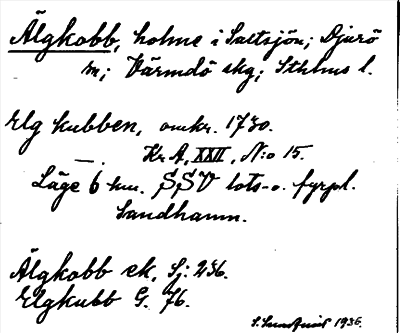 Älgkobb, holme i Saltsjön; Djurö
m; Värmdö skg; Sthlms l.
Elg kubben, omkr. 1730.
— . Kr A, XXII, N:o 15.
Läge 6 km. SSV lots- o. fyrpl.
Sandhamn.
Älgkobb ek, Sj: 236.
Elgkubb G. 76.
1936.